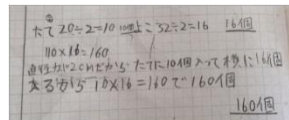 たて20÷2=10 10個 よこ32÷2=16 16個
10×16=160
直径が2cmだからたてに10個入って横に16個
あるから 10×16=160で160個
160個